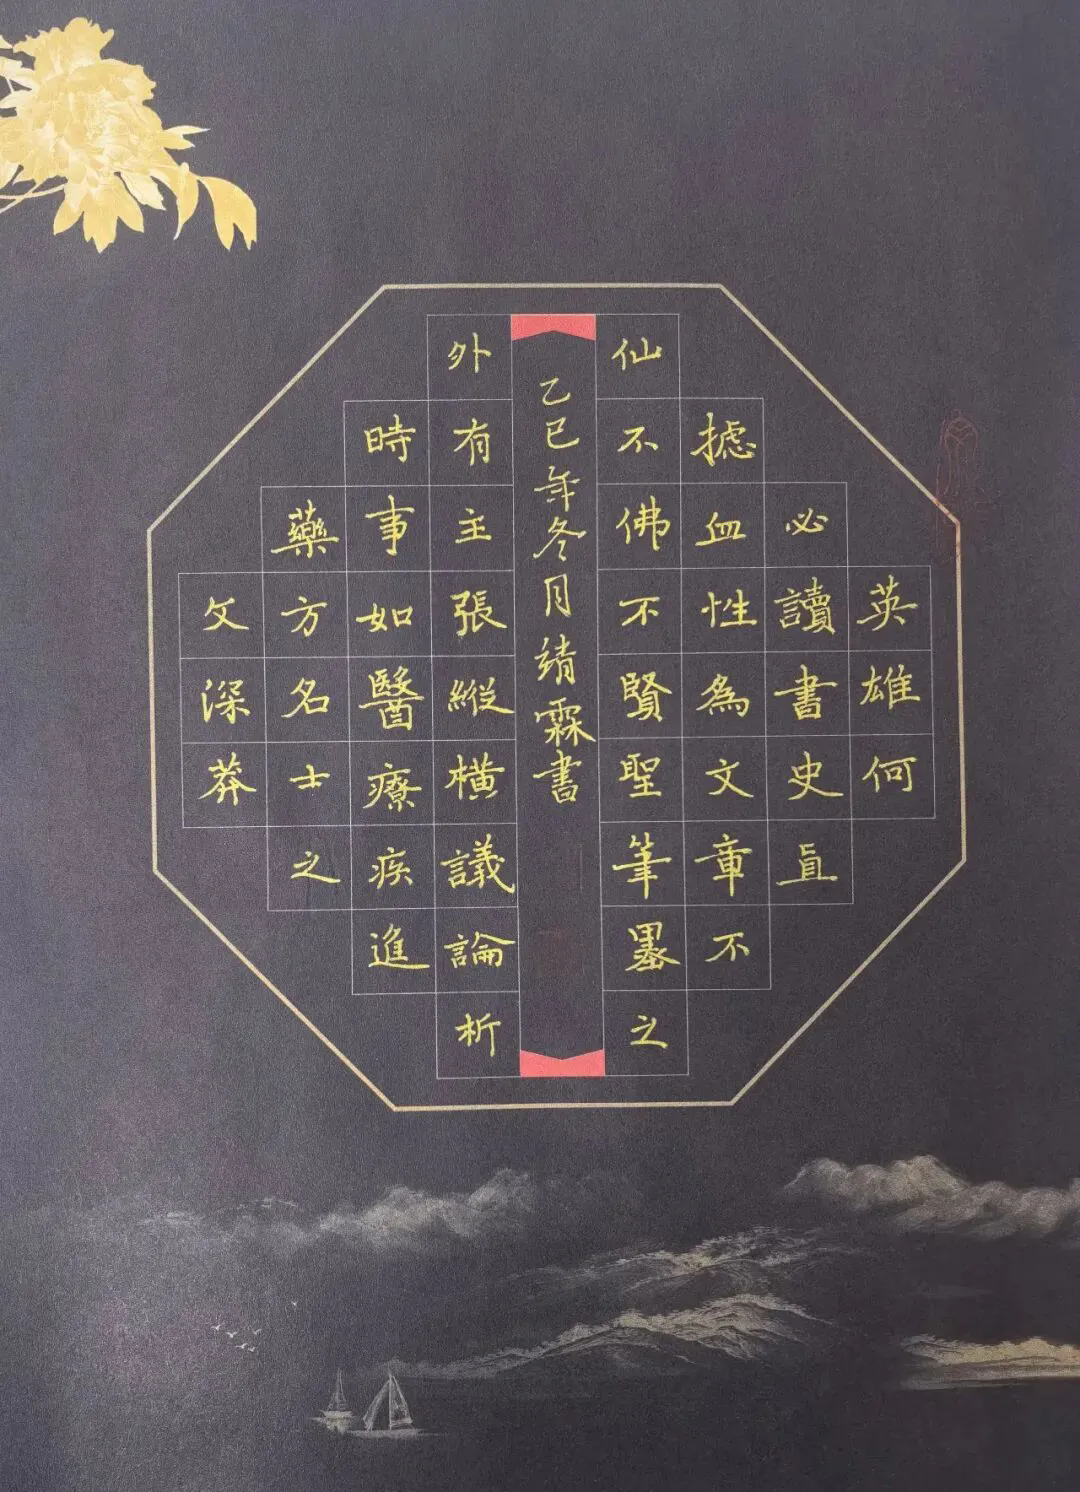 英雄何
必讀書史直
攄血性為文章不
仙不佛不賢聖筆墨之
外有主張縱橫議論析
時事如醫療疾進
藥方名士之
文深莽
乙巳年冬月靖霖書